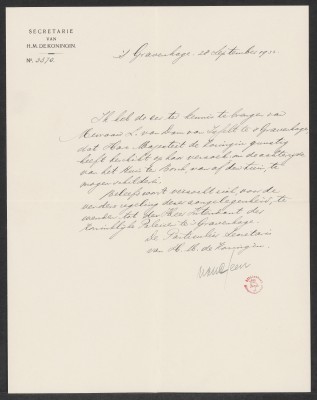 SECRETARIE
VAN
H.M. DE KONINGIN.
's Gravenhage, 28 September 19
Nº.
Ik heb de eer ter kennis te brengen van
Mevrouw L. van Dam van Isselt te 's Gravenhage,
dat Hare Majesteit de Koningin gunstig
heeft beschikt op haar verzoek om de achterzijde
van het Huis ten Bosch van af den tuin, te
mogen schilderen.
Beleefd wordt verzocht zich, voor de
verdere regeling dezer aangelegenheid, te
wenden tot den Heer Intendant der
Koninklijke Paleizen te 's Gravenhage.
De Particulier Secretaris
van H. M. de Koningin,